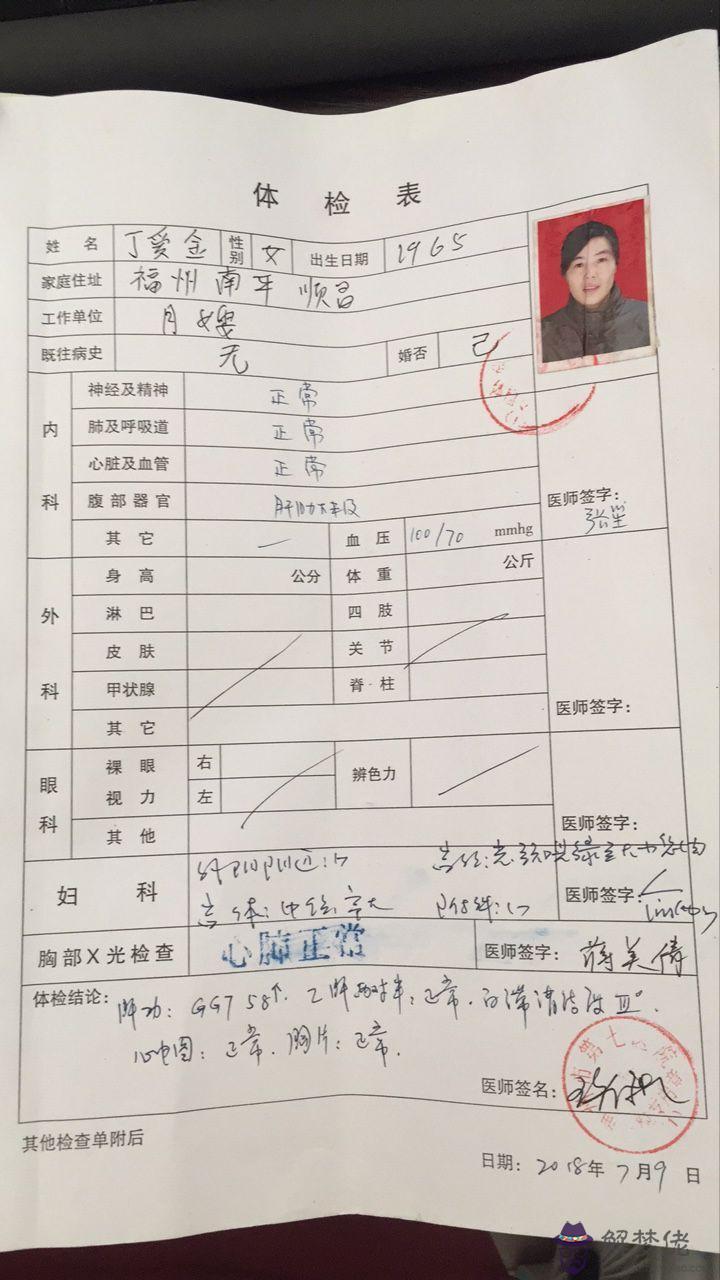 体检表
姓名 丁爱金 性别 女 出生日期 1965
家庭住址 福州南平顺昌
工作单位 月嫂
既往病史 无 婚否 己
内科
神经及精神 正常
肺及呼吸道 正常
心脏及血管 正常
腹部器官 肝肋下未及
医师签字:
其它 一 血压 100/70 mmhg
外科
身高 公分 体重 公斤
淋巴 四肢
皮肤 关节
甲状腺 脊柱
其它 医师签字:
眼科
裸眼视力 右 左 辨色力
其他 医师签字:
妇科 外阴阴道: 宫颈:光
宫体:中位 附件: 医师签字:
胸部X光检查 心肺正常 医师签字: 蒋美倩
体检结论: 肝功: GGT 58↑. 乙肝两对半:正常. 白带清洁度Ⅲ°.
心电图: 正常. 胸片: 正常.
市第七 院
医师签名:
其他检查单附后
日期: 2018年7月9日
解梦佬